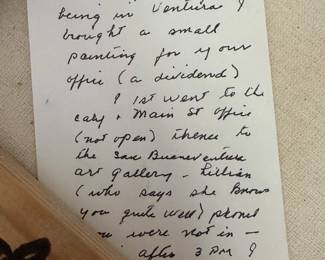 being in Ventura I
brought a small
painting for your
office (a dividend)
I 1st went to the
Main St office
(not open) thence to
the San Buenaventura
art gallery - Lillian
(who says she knows
you quite well) phoned
you were not in -
after 3 PM I